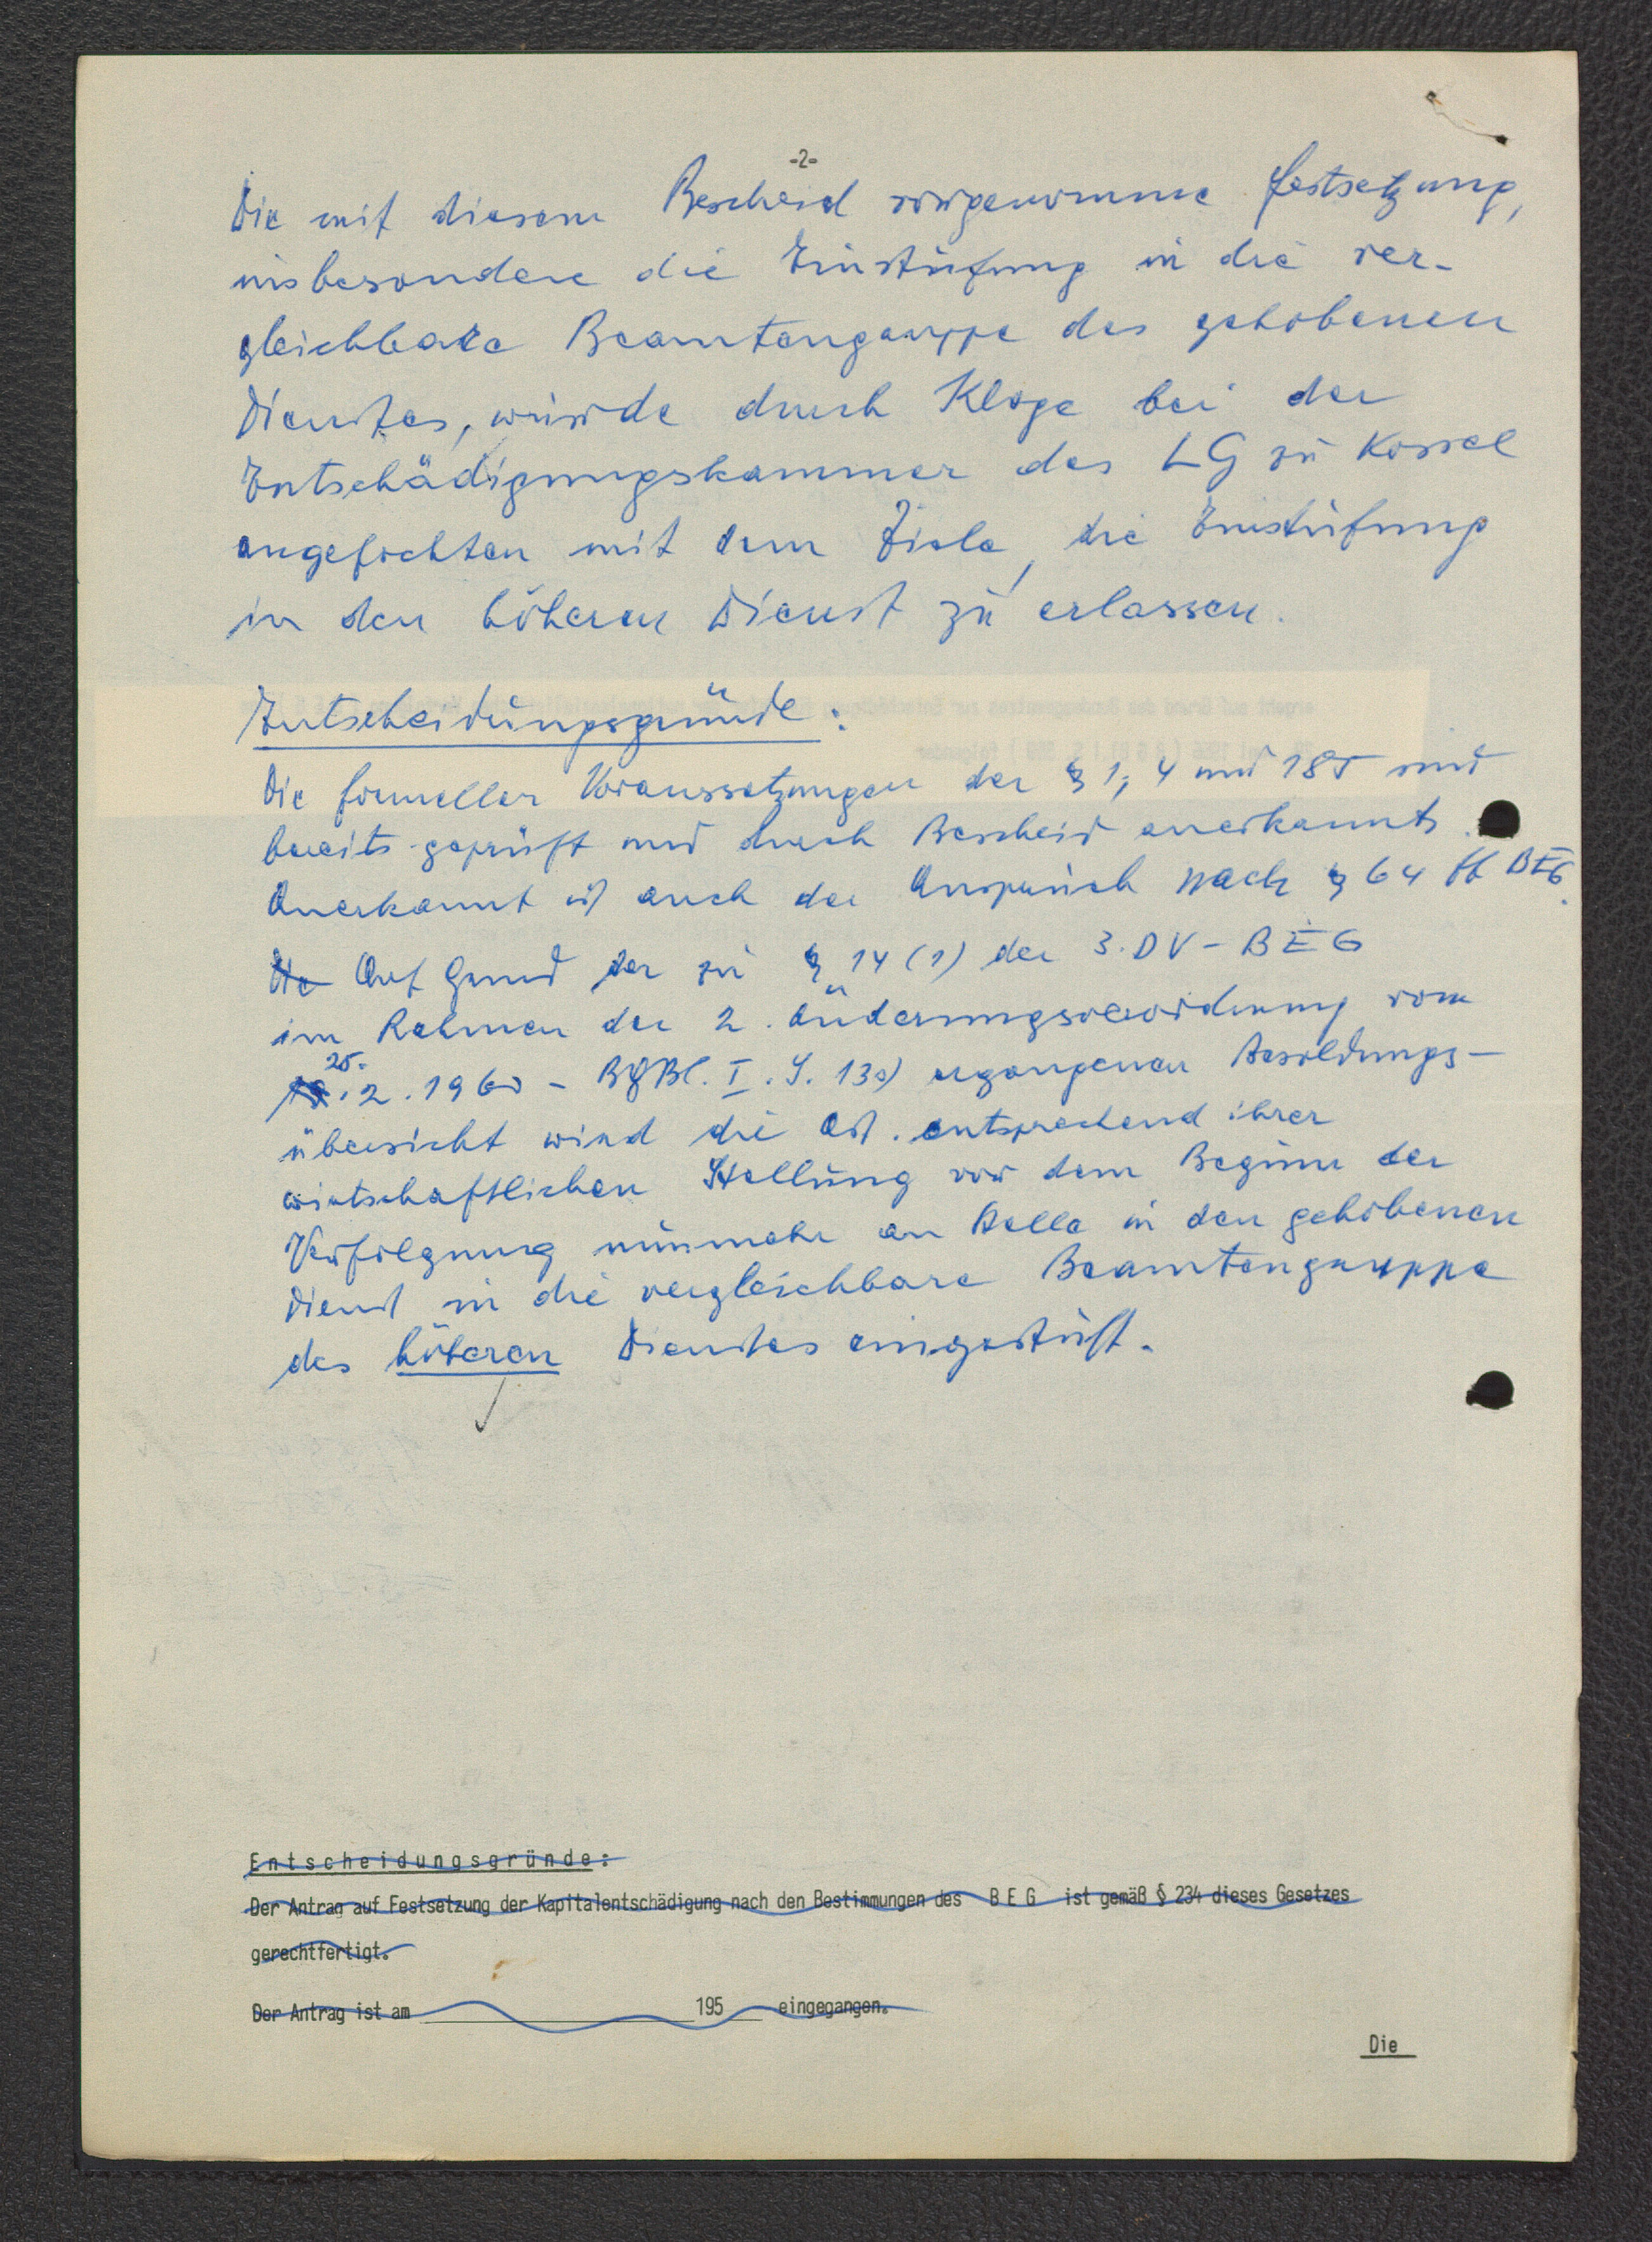 -2-
Die mit diesem Bescheid vorgenomme Festsetzung,
insbesondere die Einstufung in die ver-
gleichbare Beamtengruppe des gehobenen
Dienstes, wurde durch Klage bei der
Entschädigungskammer des LG zu Kassel
angefochten mit dem Ziele, die Einstufung
in den höheren Dienst zu erlassen.
Entscheidungsgründe:
Die formellen Voraussetzungen der § 1, 4 und 185 sind
bereits geprüft und durch Bescheid anerkannt.
Anerkannt ist auch der Anspruch nach § 64 ff BEG.
Auf Grund der zu § 14 (1) der 3. DV-BEG
im Rahmen der 2. Änderungsverordnung vom
25.2.1960 - BGBl. I. S. 130) ergangenen Besoldungs-
übersicht wird die Ast. entsprechend ihrer
wirtschaftlichen Stellung vor dem Beginn der
Verfolgung nunmehr an Stelle in den gehobenen
Dienst in die vergleichbare Beamtengruppe
des höheren Dienstes eingestuft.
Entscheidungsgründe:
Der Antrag auf Festsetzung der Kapitalentschädigung nach den Bestimmungen des BEG ist gemäß § 234 dieses Gesetzes
gerechtfertigt.
Der Antrag ist am 195 eingegangen.
Die